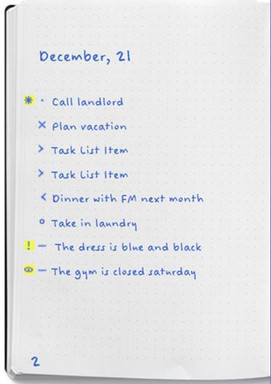 December, 21
* • Call landlord
× Plan vacation
> Task List Item
> Task List Item
< Dinner with FM next month
o Take in laundry
! — The dress is blue and black
— The gym is closed saturday
2